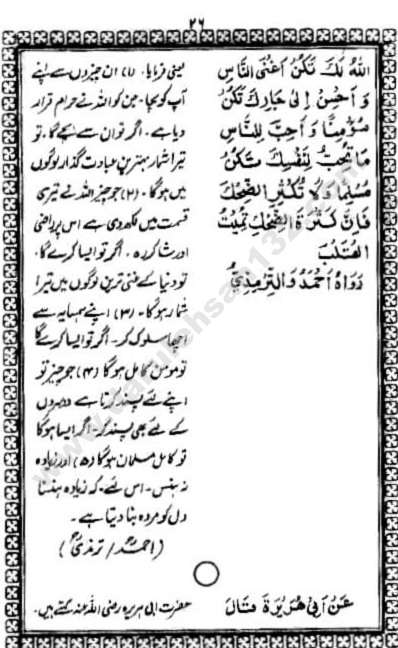 ۲۶
اللهُ لَكَ تَكُنْ أَغْنَى النَّاسِ
وَ أَحْسِنْ إِلىٰ جَارِكَ تَكُنْ
مُؤْمِنًا وَ أَحِبَّ لِلنَّاسِ
مَا تُحِبُّ لِنَفْسِكَ تَكُنْ
مُسْلِمًا وَلَا تُكْثِرِ الضِّحْكَ
فَإِنَّ كَثْرَةَ الضِّحْكِ تُمِيْتُ
الْقَلْبَ
رَوَاهُ أَحْمَدُ وَالتِّرْمِذِيُّ
یعنی فرمایا۔ (۱) ان چیزوں سے اپنے
آپ کو بچا۔ جن کو اللہ نے حرام قرار
دیا ہے۔ اگر تو ان سے بچے گا۔ تو
تیرا شمار بہترین عبادت گذار لوگوں
میں ہوگا۔ (۲) جو چیز اللہ نے تیری
قسمت میں لکھ دی ہے اس پر راضی
اور شاکر رہ۔ اگر تو ایسا کرے گا۔
تو دنیا کے غنی ترین لوگوں میں تیرا
شمار ہوگا۔ (۳) اپنے ہمسایہ سے
اچھا سلوک کر۔ اگر تو ایسا کرے گا
تو مومن کامل ہوگا (۴) جو چیز تو
اپنے لئے پسند کرتا ہے دوسروں
کے لئے بھی پسند کر۔ اگر ایسا ہوگا
تو کامل مسلمان ہوگا (۵) اور زیادہ
نہ ہنس۔ اس لئے۔ کہ زیادہ ہنسنا
دل کو مردہ بنا دیتا ہے۔
(احمدؒ / ترمذیؒ)
عَنْ أَبِيْ هُرَيْرَةَ قَالَ
حضرت ابی ہریرہ رضی اللہ عنہ کہتے ہیں۔